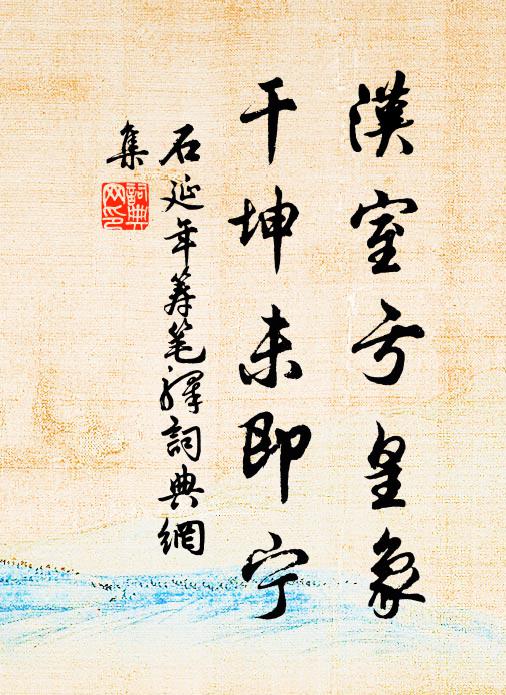 漢室亏皇象
干坤未即宁
石延年筹笔驛詞典網
集
詞典網印